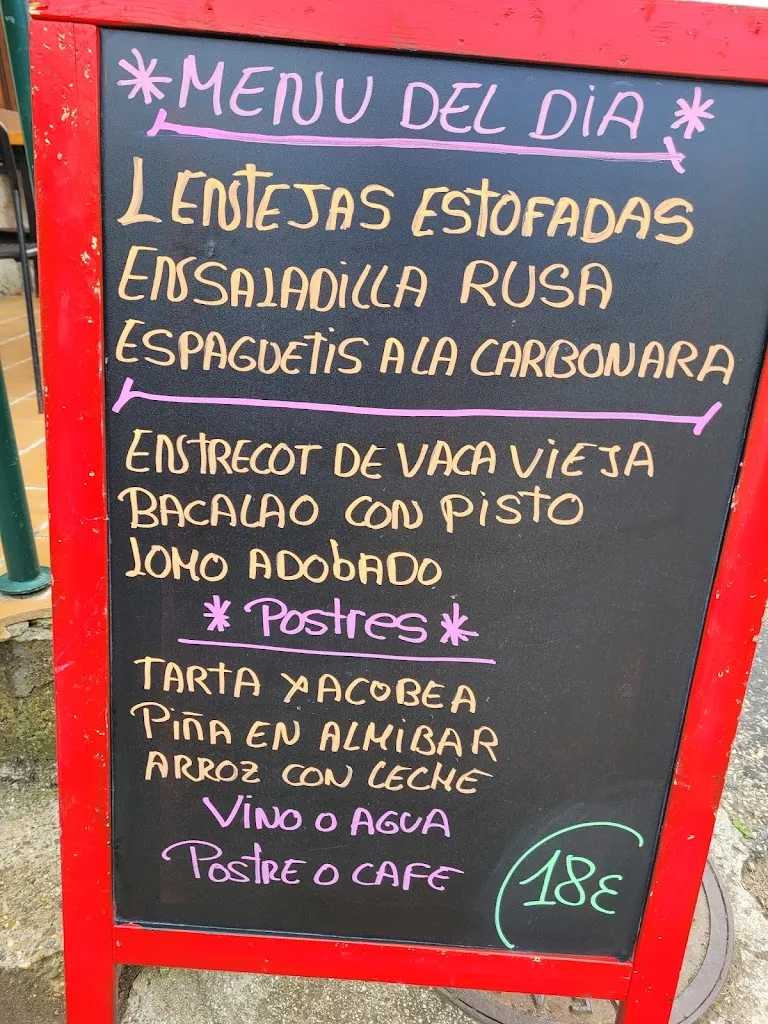 *MENU DEL DIA*
LENTEJAS ESTOFADAS
ENSALADILLA RUSA
ESPAGUETIS A LA CARBONARA
ENTRECOT DE VACA VIEJA
BACALAO CON PISTO
LOMO ADObADO
*Postres*
TARTA YACOBEA
PIÑA EN ALMIBAR
ARROZ CON LECHE
VINO O AGUA
POSTRE O CAFE
18€